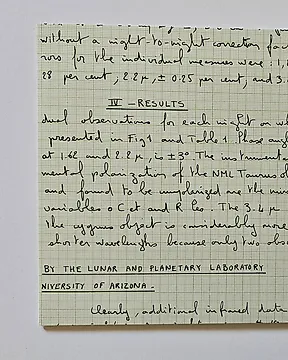 without a night-to-night correction fac
rors for the individual measures were : 1.
28 per cent, 2.2 μ, ± 0.25 per cent, and 3.
IV - RESULTS
dual observations for each night on wh
presented in Fig 1 and Table 1. Phase ang
at 1.62 and 2.2 μ, is ± 3° The instrument
mental polarization of the NML Taurus o
and found to be unpolarized are the mir
variables o Cet and R Leo. The 3.4 μ
The cygnus object is considerably more
shorter wavelengths because only two obs
BY THE LUNAR AND PLANETARY LABORATORY
NIVERSITY OF ARIZONA.
Clearly, additional infrared data